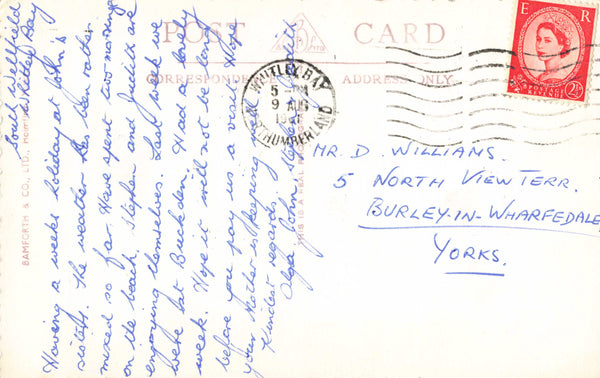 POST CARD
CORRESPONDENCE
ADDRESS ONLY
BAMFORTH & CO., LTD.
THIS IS A REAL
E R
2½D
WHITLEY BAY
5 PM
9 AUG
NORTHUMBERLAND
MR. D. WILLIAMS.
5 NORTH VIEW TERR.
BURLEY-IN-WHARFEDALE
YORKS.
Whitley Bay
Having a weeks holiday at John's
sisters. The weather has been rather
mixed so far. Have spent two mornings
on the beach. Stephen and Judith are
enjoying themselves. Last week we
were at Buckden. Had a lovely
week. Hope it will not be long
before you pay us a visit. Hope
your Mother is keeping well.
Kindest regards.
Olga John Stephen Judith